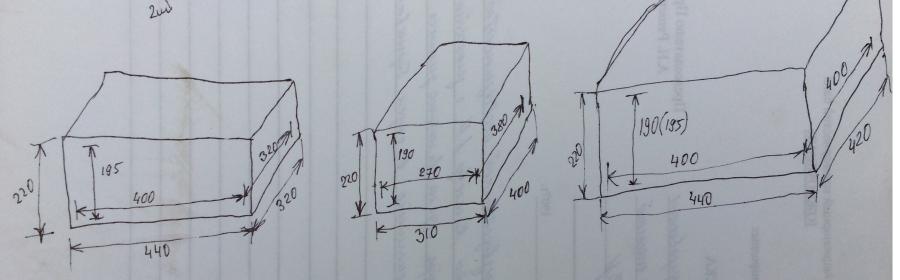 2шт
220
195
400
320
320
440
220
190
270
380
400
310
220
190(195)
400
400
420
440